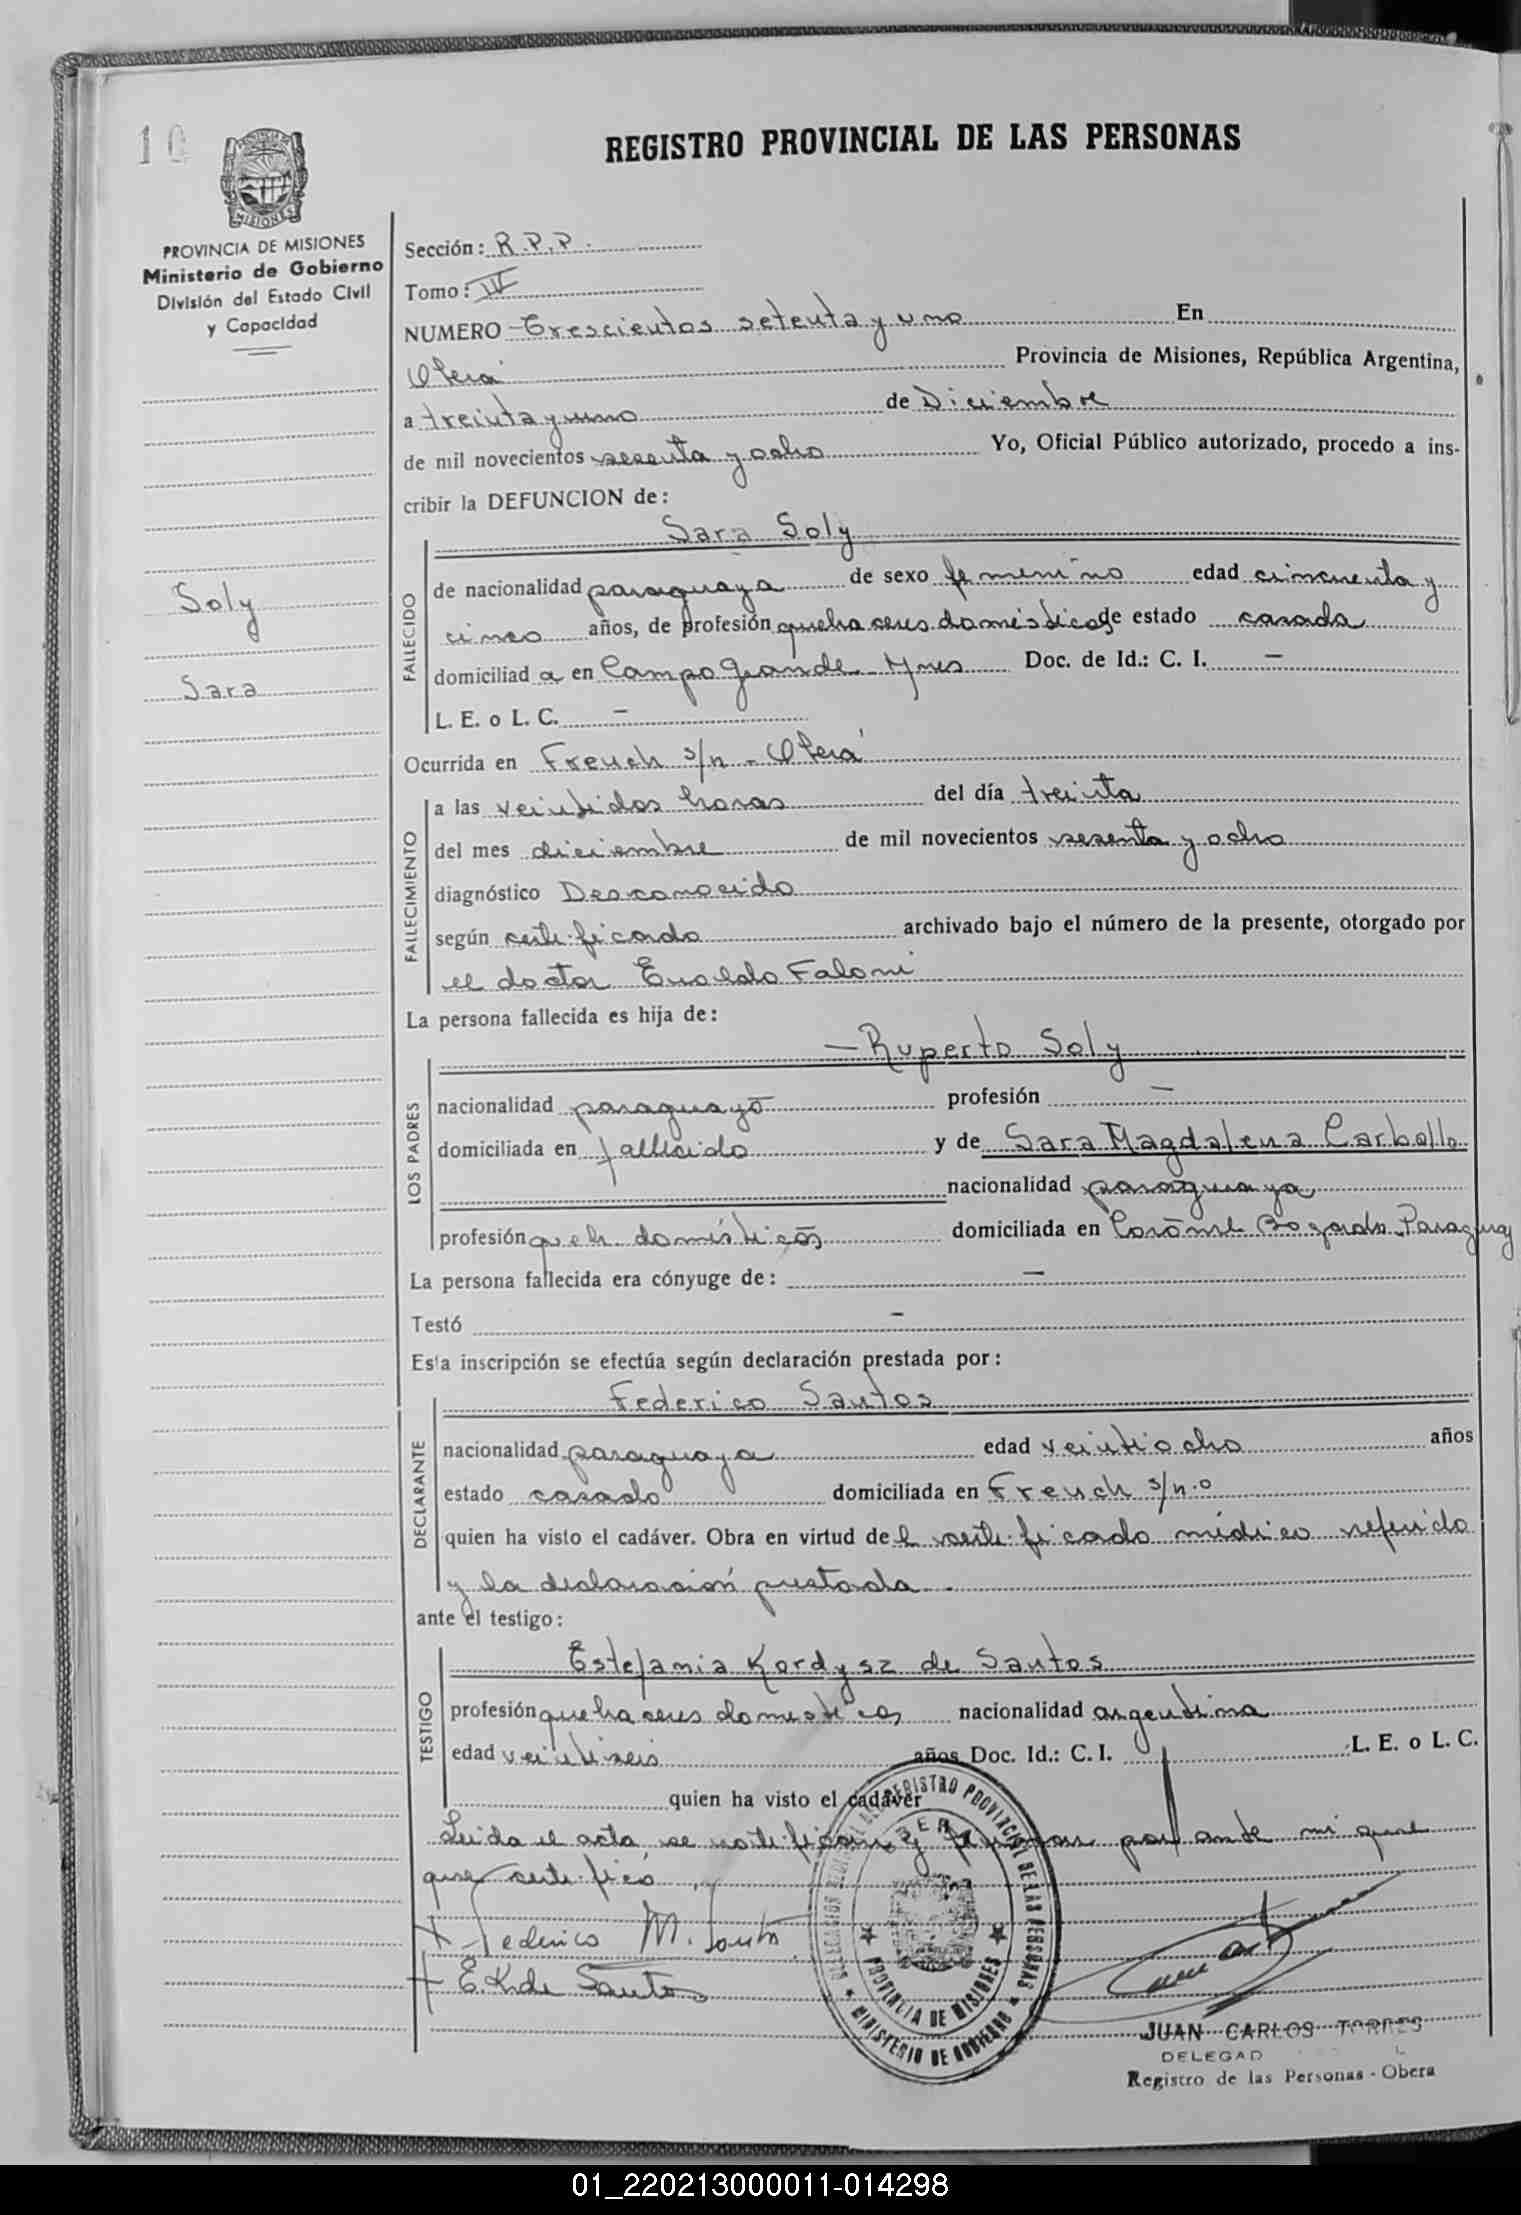 10
REGISTRO PROVINCIAL DE LAS PERSONAS
PROVINCIA DE MISIONES
Ministerio de Gobierno
División del Estado Civil
y Capacidad
Soly
Sara
Sección: R.P.P.
Tomo: IV
NUMERO Trescientos setenta y uno En
Oberá Provincia de Misiones, República Argentina,
a treinta y uno de Diciembre
de mil novecientos sesenta y ocho Yo, Oficial Público autorizado, procedo a ins-
cribir la DEFUNCION de:
Sara Soly
FALLECIDO
de nacionalidad paraguaya de sexo femenino edad cincuenta y
cinco años, de profesión quehaceres domésticos de estado casada
domiciliad a en Campo Grande Mnes Doc. de Id.: C. I. –
L. E. o L. C. –
Ocurrida en French s/n - Oberá
FALLECIMIENTO
a las veintidos horas del día treinta
del mes diciembre de mil novecientos sesenta y ocho
diagnóstico Desconocido
según certificado archivado bajo el número de la presente, otorgado por
el doctor Faloni
La persona fallecida es hija de:
— Ruperto Soly
LOS PADRES
nacionalidad paraguayo profesión –
domiciliada en fallecido y de Sara Magdalena Carballo
nacionalidad paraguaya
profesión queh. domésticos domiciliada en Coronel Bogardo Paraguay
La persona fallecida era cónyuge de: –
Testó –
Esta inscripción se efectúa según declaración prestada por:
Federico Santos
DECLARANTE
nacionalidad paraguaya edad veintiocho años
estado casado domiciliada en French s/n.o
quien ha visto el cadáver. Obra en virtud de l certificado médico referido
y la declaración prestada.
ante el testigo:
Estefania Kordysz de Santos
TESTIGO
profesión quehaceres domesticos nacionalidad argentina
edad veintiseis años Doc. Id.: C. I. L. E. o L. C.
quien ha visto el cadáver
Leida el acta, se ratifican y firman por ante mi que
que certifico
Federico M. Santos
E. K. de Santos
DELEGACION REGISTRO PROVINCIAL DE LAS PERSONAS
OBERA
PROVINCIA DE MISIONES
MINISTERIO DE GOBIERNO
JUAN CARLOS TORRES
DELEGAD
Registro de las Personas - Obera
01_220213000011-014298